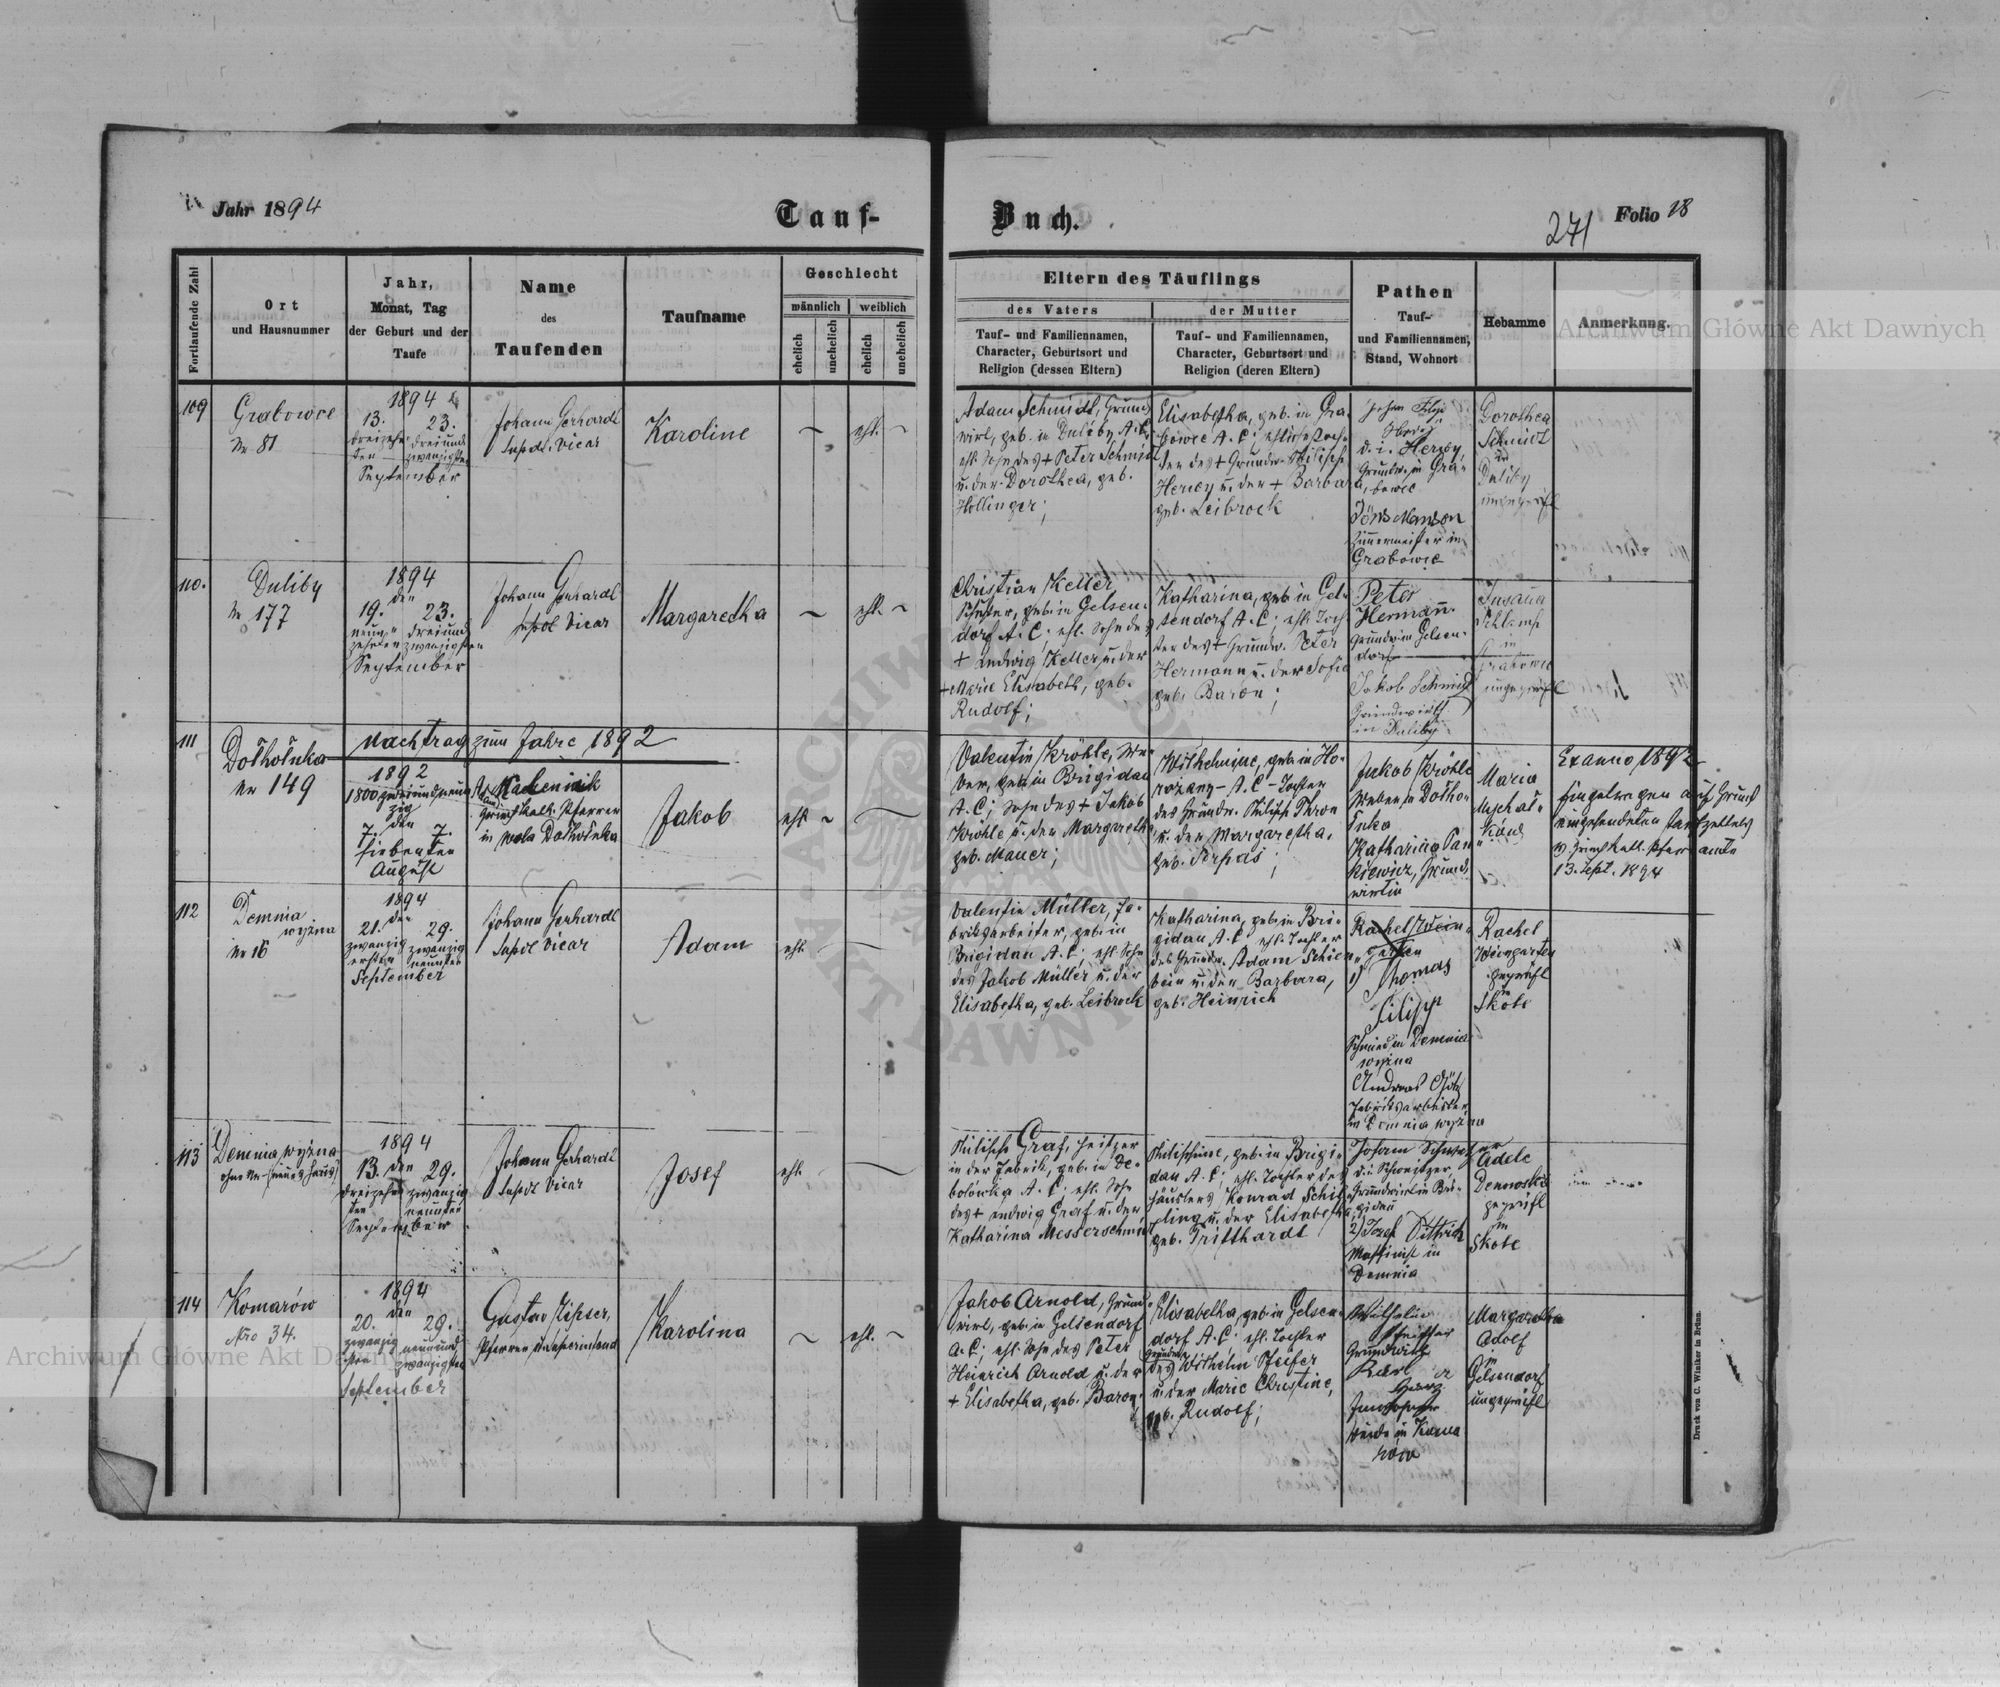 Jahr 1894
Tauf-
Buch.
271
Folio 18
Fortlaufende Zahl
Ort
und Hausnummer
Jahr,
Monat, Tag
der Geburt und der
Taufe
Name
des
Taufenden
Taufname
Geschlecht
männlich
weiblich
ehelich
unehelich
ehelich
unehelich
Eltern des Täuflings
des Vaters
der Mutter
Tauf- und Familiennamen,
Character, Geburtsort und
Religion (dessen Eltern)
Tauf- und Familiennamen,
Character, Geburtsort und
Religion (deren Eltern)
Pathen
Tauf-
und Familiennamen,
Stand, Wohnort
Hebamme
Anmerkung.
109
Grabowce
Nr 81
1894
13. 23.
dreizehn dreiund
ten zwanzigsten
September
Johann Gerhardt
Supdt. Vicar
Karoline
ehl.
Adam Schmidt, Grund
wirt, geb. in Duliby A. C.
ehl. Sohn des + Peter Schmidt
u. der Dorothea, geb.
Hollinger;
Elisabetha, geb. in Gra-
bowce A. C.; eheliche Toch-
ter des + Grundw. Philipp
Hercy u. der + Barbara,
geb. Leibrock
d. i. Hercy,
Grundw. in Gra-
bowce
Jöns Manson
Zimmermeister in
Grabowce
Dorothea
Schmidt
in
Duliby
ungeprüft
110.
Duliby
Nr 177
1894
den
19. 23.
neun- dreiund
zehnten zwanzigsten
September
Johann Gerhardt
Supdt Vicar
Margaretha
ehl.
Christian Keller
Schuster, geb. in Gelsen-
dorf A. C.; ehl. Sohn des
+ Ludwig Keller u. der
+ Marie Elisabeth, geb.
Rudolf;
Katharina, geb. in Gel-
sendorf A. C.; ehl. Toch-
ter des + Grundw. Peter
Hermann u. der Sofie
geb. Baron;
Peter
Hermann
Grundw. in Gelsen-
dorf
Jakob Schmidt
Grundwirth
in Duliby
Susanna
in
Grabowce
ungeprüft
111
Nachtrag zum Jahre 1892
Dołhołuka
Nr 149
1892
1800 zweiundneun
zig
den
7. 7.
siebenten
August
griech. kath. Pfarrer
in wola Dołhołuka
Jakob
ehl
Valentin Kröhle, We-
ber, geb. in Brigidau
A. C.; Sohn des + Jakob
Kröhle u. der Margaretha
geb. Mauer;
Wilhelmine, geb. in Ho-
rożany - A. C - Tochter
des Grundw. Philipp Thron
u. der Margaretha,
geb. Serpas;
Jakob Kröhle
Weber in Dołho-
łuka
Katharina Pan
kiewicz, Grund
wirtin
Maria
Ex anno 1892
Eingetragen auf Grund
eingesendeten Taufzettels
v. griech. kath. Pfarramte
13. Sept. 1894
112
Demnia
wyżna
Nr 16
1894
den
21. 29.
zwanzig zwanzig
ersten neunten
September
Johann Gerhardt
Supdt Vicar
Adam
ehl.
Valentin Müller, Fa-
briksarbeiter, geb. in
Brigidau A. C; ehl. Sohn
des Jakob Müller u. der
Elisabetha, geb. Leibrock
Katharina, geb. in Bri-
gidau A. C; ehl. Tochter
des Grundw. Adam Schien-
bein u. der Barbara,
geb. Heinrich
Rachel Wein-
garten
1) Thomas
Filipp
Schmied in Demnia
wyżna
Andreas Götz
Fabriksarbeiter
in Demnia wyżna
Rachel
Weingarten
geprüft
in
Skole
113
Demnia wyżna
ohne Nr (neues Haus)
1894
13. den 29.
dreizehn zwanzig
ten neunten
September
Johann Gerhardt
Supdt Vicar
Josef
ehl.
Philipp Graf, Heitzer
in der Fabrik, geb. in De-
bolówka A. C; ehl. Sohn
des + Ludwig Graf u. der
Katharina Messerschmidt
Philippine, geb. in Brigi-
dau A. C; ehl. Tochter des
Häuslers Konrad Schil-
ling u. der Elisabetha,
geb. Trifthardt
Grundwirth in Bri-
gidau
2) Josef Dittrich
Maschinist in
Demnia
Adele
geprüft
in
Skole
114
Komarów
Nro 34.
1894
den
20. 29.
zwanzig neunund
sten zwanzigsten
September
Gustav Lipser,
Pfarrer, Superintend
Karolina
ehl.
Jakob Arnold, Grund-
wirt, geb. in Gelsendorf
A. C; ehl. Sohn des Peter
Heinrich Arnold u. der
+ Elisabetha, geb. Baron;
Elisabetha, geb. in Gelsen-
dorf A. C; ehl. Tochter
des Grundw. Wilhelm Pfeifer
u. der Marie Christine,
geb. Rudolf;
Wilhelm
Pfeiffer
Grundwirth
Karl
beide in Koma
rów
Margaretha
Adolf
in
Gelsendorf
ungeprüft
Druck von C. Winiker in Brünn.
Archiwum Główne Akt Dawnych
Archiwum Główne Akt Dawnych